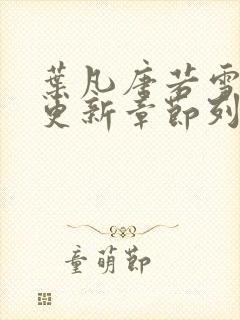 葉凡唐若雪
更新章節列
童萌節